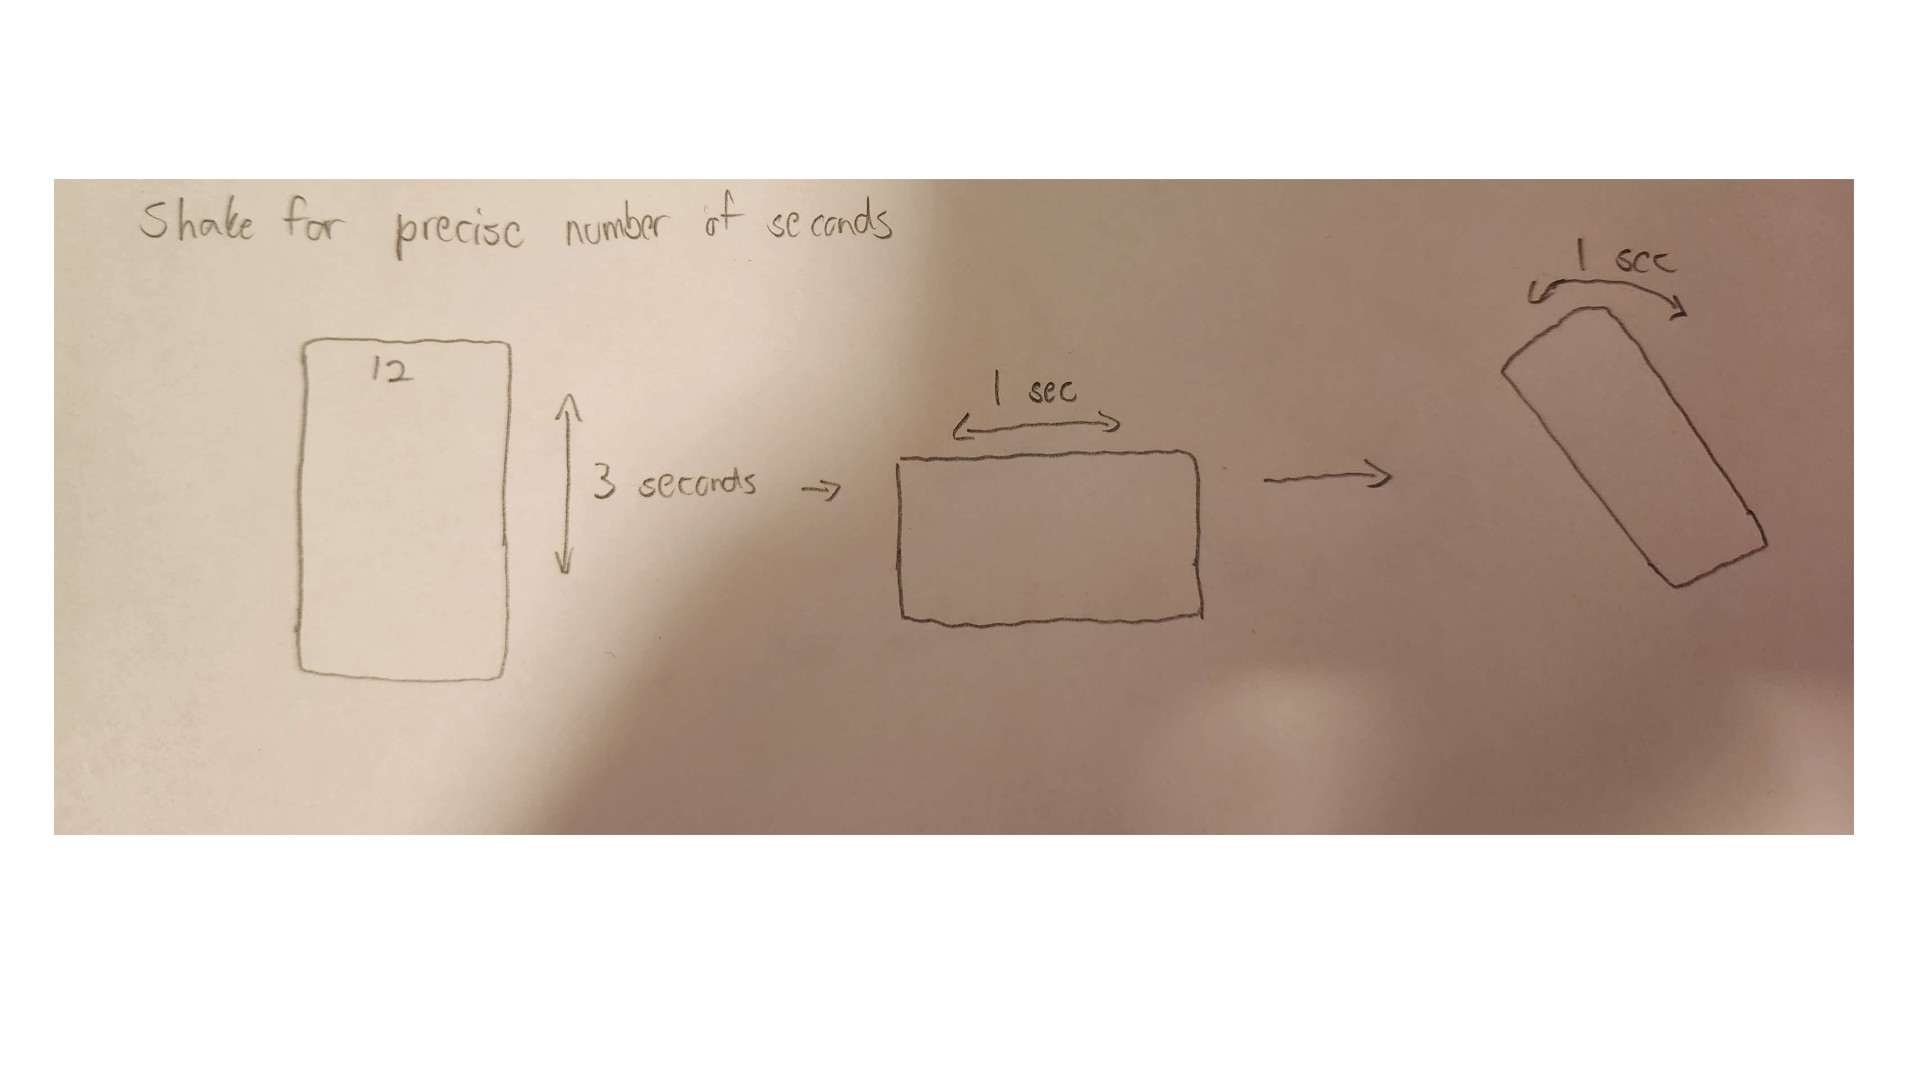 Shake for precise number of seconds
12
3 seconds
1 sec
1 sec